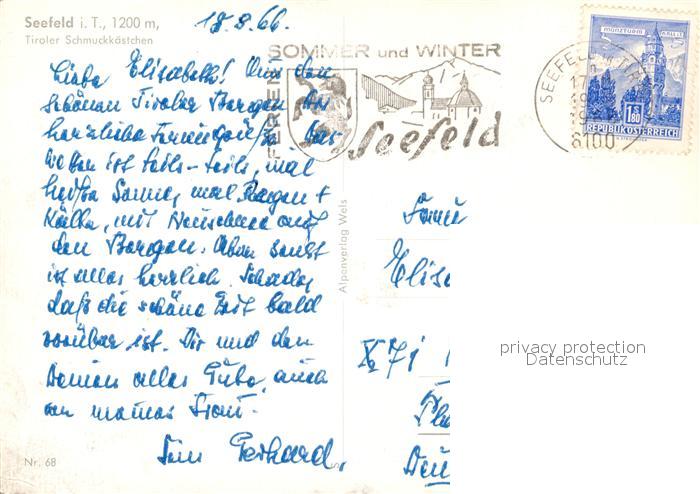 Seefeld i. T., 1200 m,
Tiroler Schmuckkästchen
18.8.66.
Liebe Elisabeth! Aus den
schönen Tiroler Bergen Dir
herzliche Feriengrüße. Das
Wetter ist teils-teils, mal
heiße Sonne, mal Regen +
Kälte, mit Neuschnee auf
den Bergen. Aber sonst
ist alles herrlich. Schade,
daß die schöne Zeit bald
vorüber ist. Dir und den
Deinen alles Gute, auch
an meine
Dein Gerhard.
Nr. 68
Alpenverlag Wels
FERIEN
SOMMER und WINTER
Seefeld
SEEFELD
6100
MÜNZTURM
1.80
REPUBLIK ÖSTERREICH
Elis
X 71
privacy protection
Datenschutz